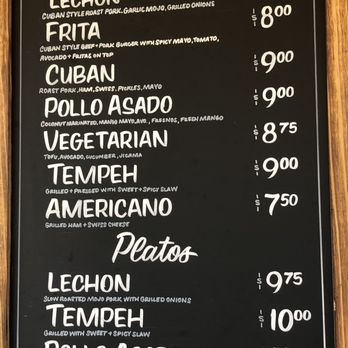 LECHON
CUBAN STYLE ROAST PORK, GARLIC MOJO, GRILLED ONIONS
$8.00
FRITA
CUBAN STYLE BEEF + PORK BURGER WITH SPICY MAYO, TOMATO,
AVOCADO + FRITAS ON TOP
CUBAN $9.00
ROAST PORK, HAM, SWISS, PICKLES, MAYO
POLLO ASADO $9.00
COCONUT MARINATED, MANGO MAYO, AVO., GREENS, FRESH MANGO
VEGETARIAN $8.75
TOFU, AVOCADO, CUCUMBER, JICAMA
TEMPEH $9.00
GRILLED + PRESSED WITH SWEET + SPICY SLAW
AMERICANO $7.50
GRILLED HAM + SWISS CHEESE
Platos
LECHON $9.75
SLOW ROASTED MOJO PORK WITH GRILLED ONIONS
TEMPEH $10.00
GRILLED WITH SWEET + SPICY SLAW
POLLO